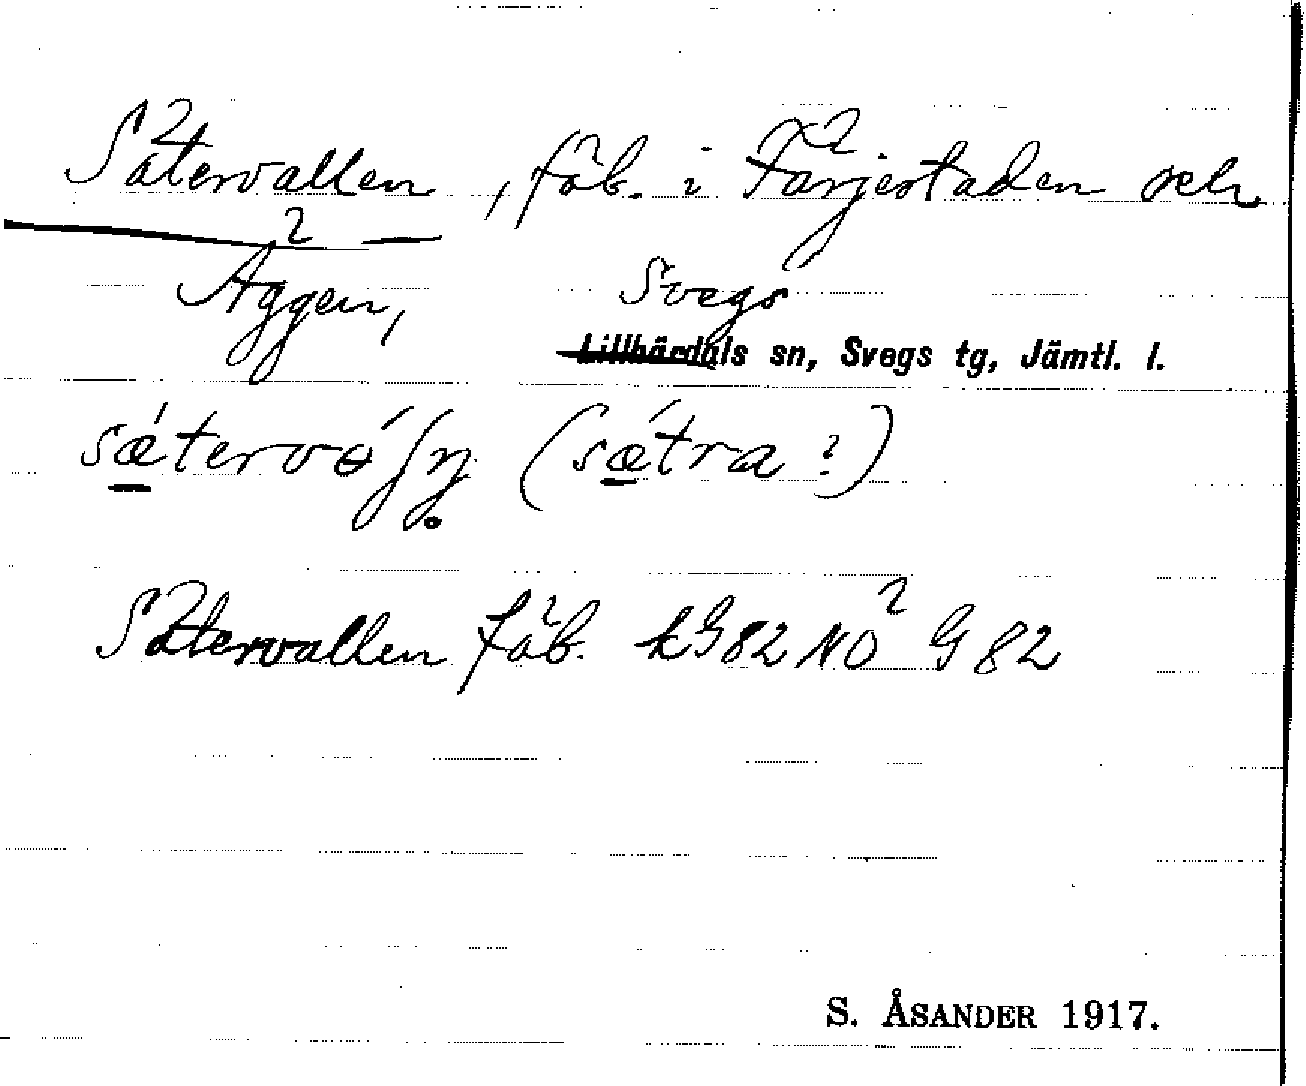 Sätervallen, fäb. i Färjestaden och
Äggen, Svegs
Lillhärdals sn, Svegs tg, Jämtl. l.
sǽtervóln (sǽtra ?)
Sätervallen fäb. kG82NÖ G82
S. ÅSANDER 1917.